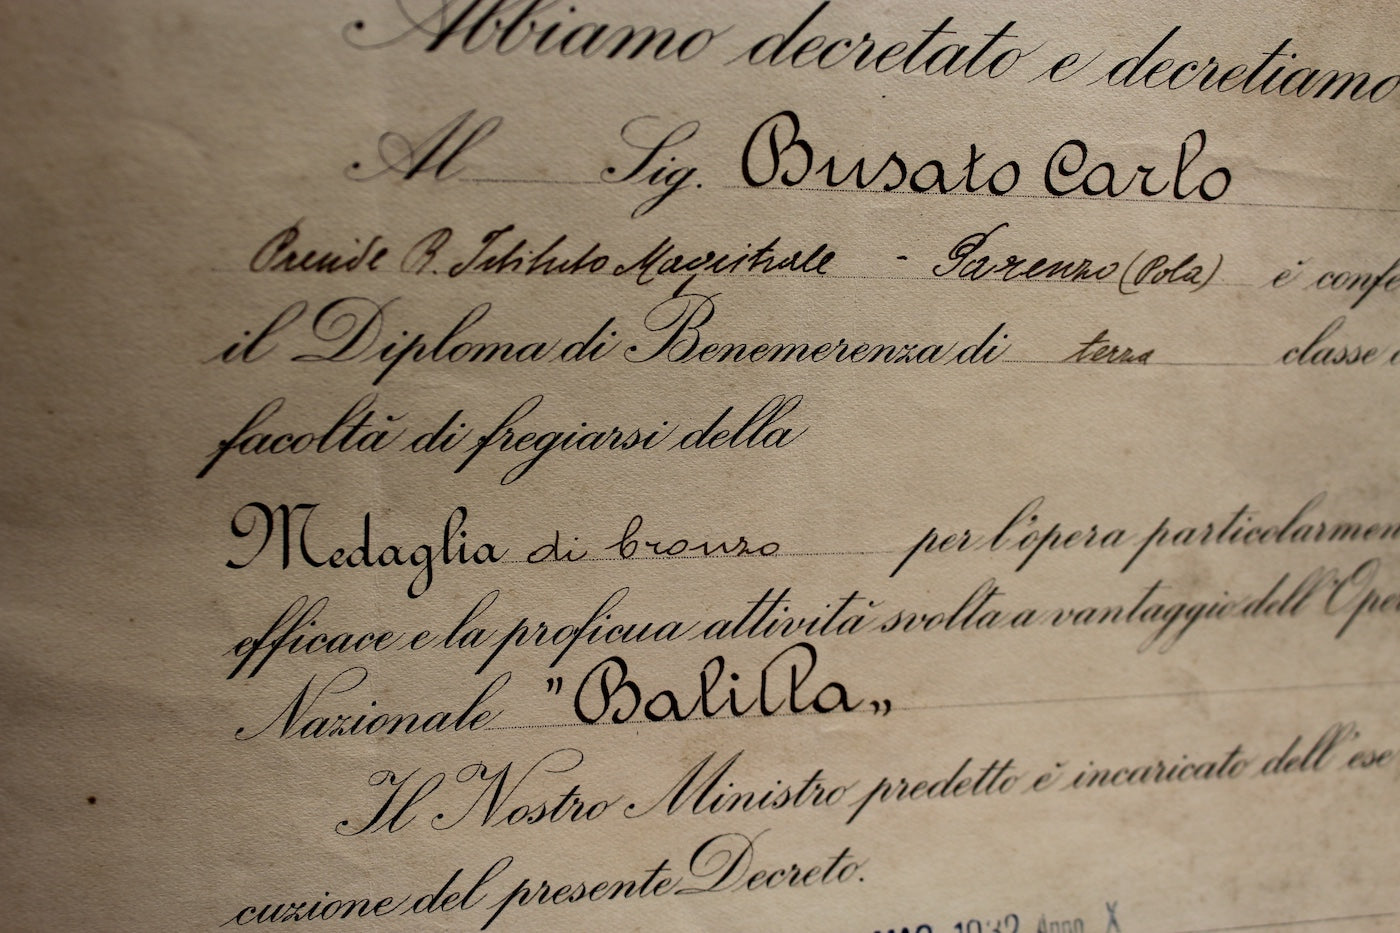 Abbiamo decretato e decretiamo
Al Sig. Busato Carlo
Preside R. Istituto Magistrale - Parenzo (Pola) è confe
il Diploma di Benemerenza di terza classe
facoltà di fregiarsi della
Medaglia di bronzo per l'opera particolarmen
efficace e la proficua attività svolta a vantaggio dell'Ope
Nazionale "Balilla„
Il Nostro Ministro predetto è incaricato dell'ese
cuzione del presente Decreto.
1932 Anno X